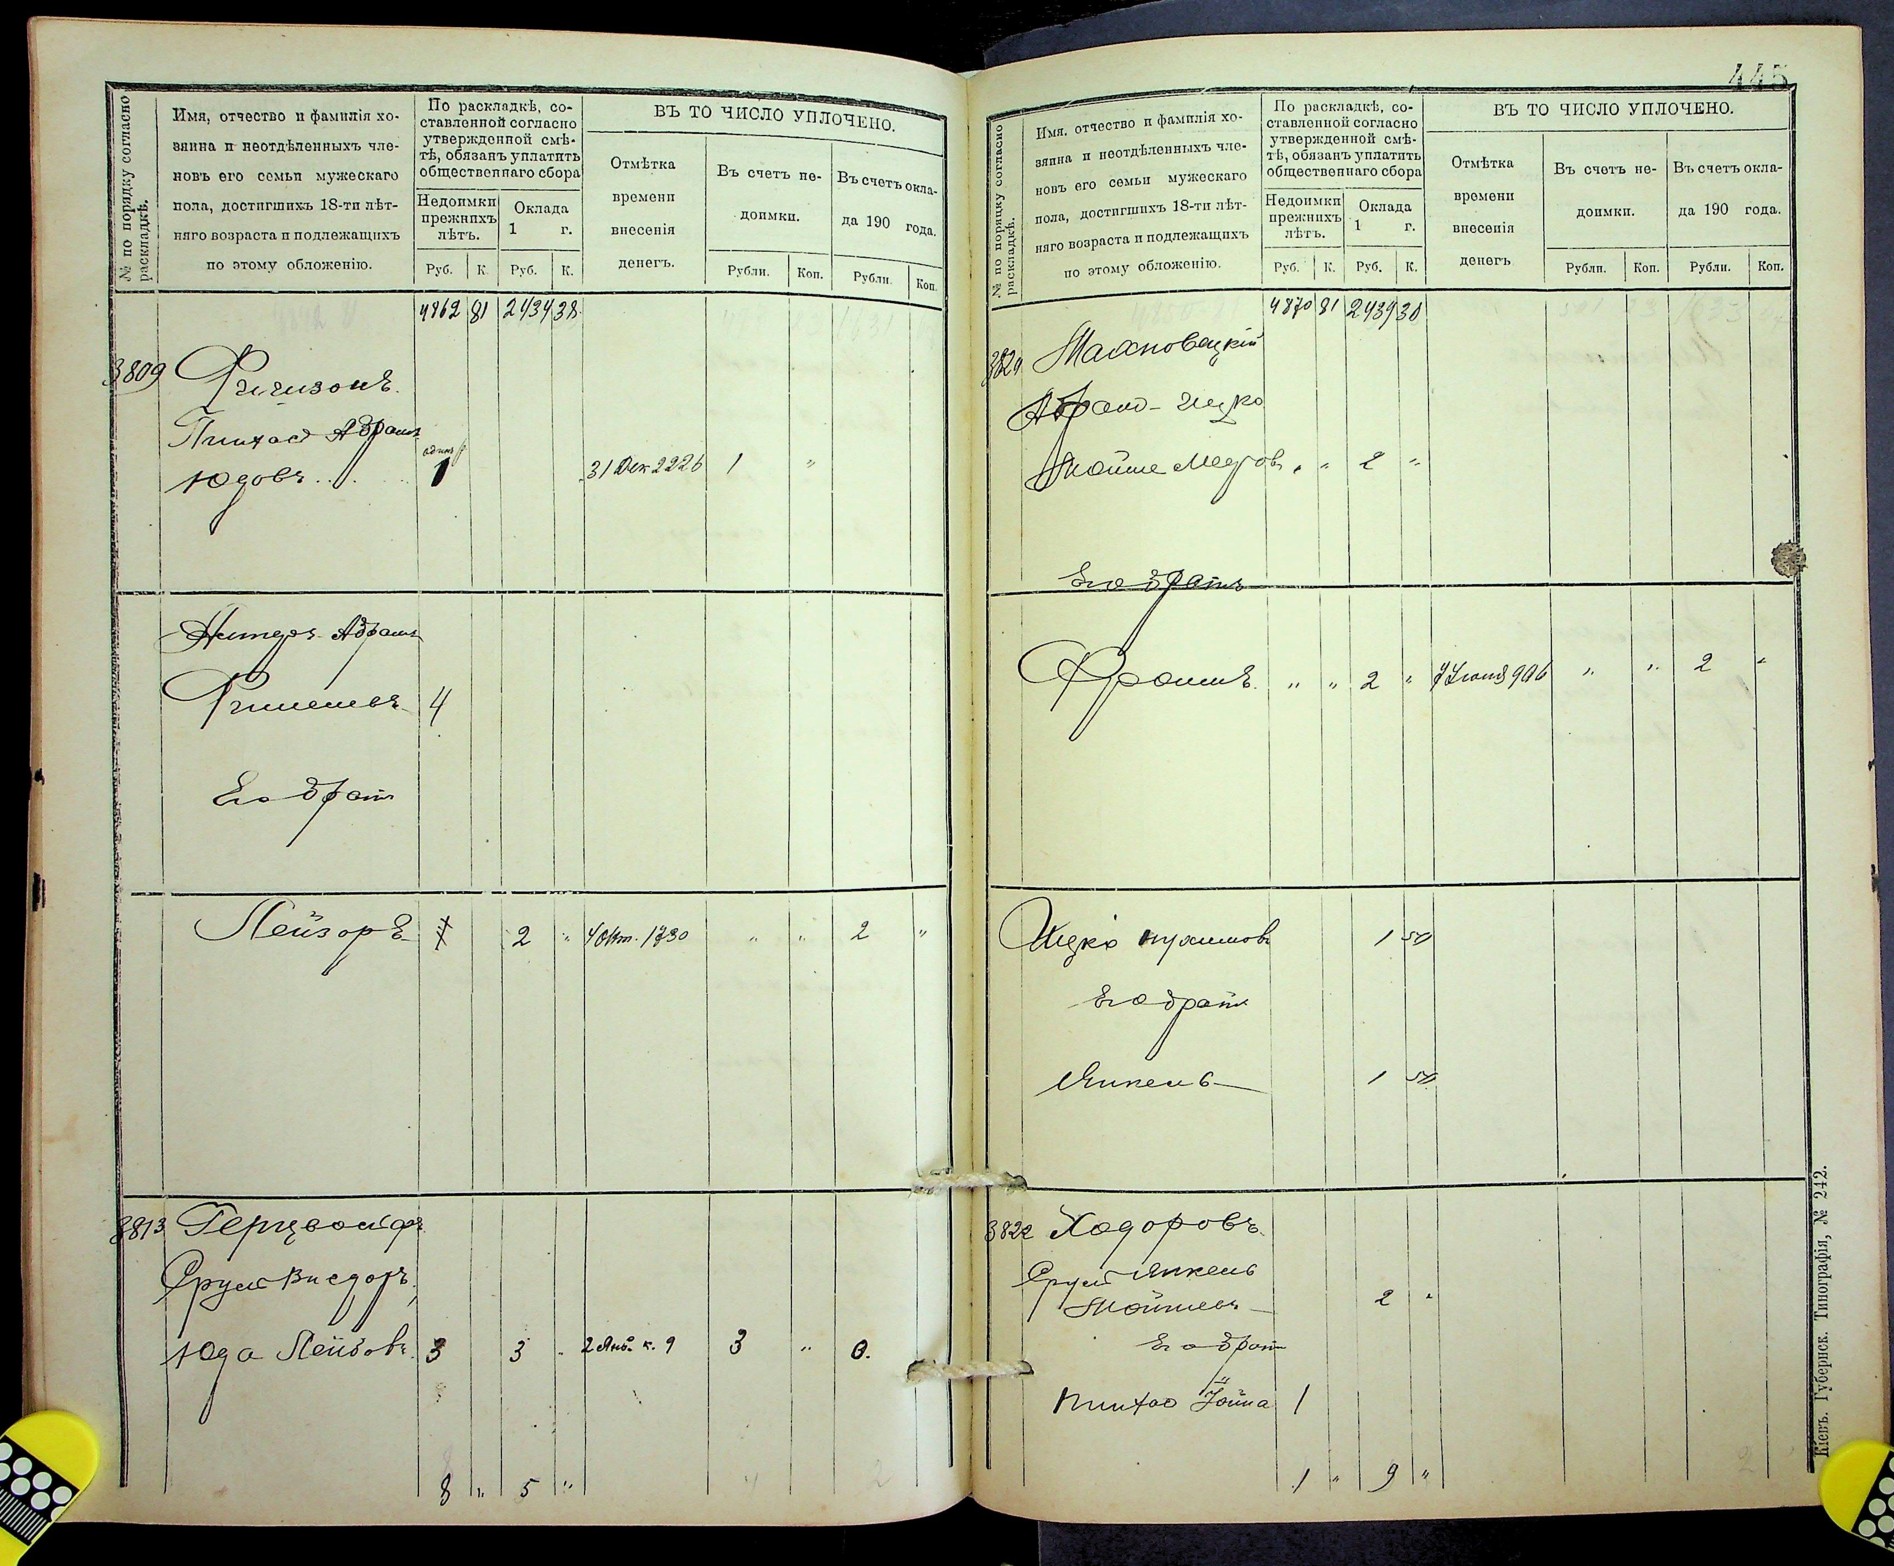 № по порядку согласно раскладкѣ.
Имя, отчество и фамилія хо-
зяина и неотдѣленныхъ чле-
новъ его семьи мужескаго
пола, достигшихъ 18-ти лѣт-
няго возраста и подлежащихъ
по этому обложенію.
По раскладкѣ, со-
ставленной согласно
утвержденной смѣ-
тѣ, обязанъ уплатить
общественнаго сбора
Недоимки
прежнихъ
лѣтъ.
Оклада
1 г.
Руб. К. Руб. К.
ВЪ ТО ЧИСЛО УПЛОЧЕНО.
Отмѣтка
времени
внесенія
денегъ.
Въ счетъ не-
доимки.
Въ счетъ окла-
да 190 года.
Рубли. Коп. Рубли. Коп.
4862 81 2434 38
3809
Пинхас Абрамъ
Юдовъ 1 31 Дек 2226 1 "
Абрамъ
4
Его брат
Лейзоръ 2 " 4 Окт. 1730 " " 2 "
3813 Герцвольфъ
Срул Висдоръ,
Юда Лейбовъ 3 3 3 " 0.
8 " 5 "
445
№ по порядку согласно раскладкѣ.
Имя, отчество и фамилія хо-
зяина и неотдѣленныхъ чле-
новъ его семьи мужескаго
пола, достигшихъ 18-ти лѣт-
няго возраста и подлежащихъ
по этому обложенію.
По раскладкѣ, со-
ставленной согласно
утвержденной смѣ-
тѣ, обязанъ уплатить
общественнаго сбора
Недоимки
прежнихъ
лѣтъ.
Оклада
1 г.
Руб. К. Руб. К.
ВЪ ТО ЧИСЛО УПЛОЧЕНО.
Отмѣтка
времени
внесенія
денегъ
Въ счетъ не-
доимки.
Въ счетъ окла-
да 190 года.
Рубли. Коп. Рубли. Коп.
4870 81 2439 38
Махновецкій
Абрам-Ицко
Мойше " 2 "
Его братъ
Фроимъ. " " 2 " " " 2 "
Ицко Нухимовъ 1 50
Его братъ
Янкель 1 50
3822 Ходоровъ
Срул Янкель
Мойшевъ 2 "
Его брат
Пинхас Іойна 1
1 " 9 "
Кіевъ. Губернск. Типографія, № 242.